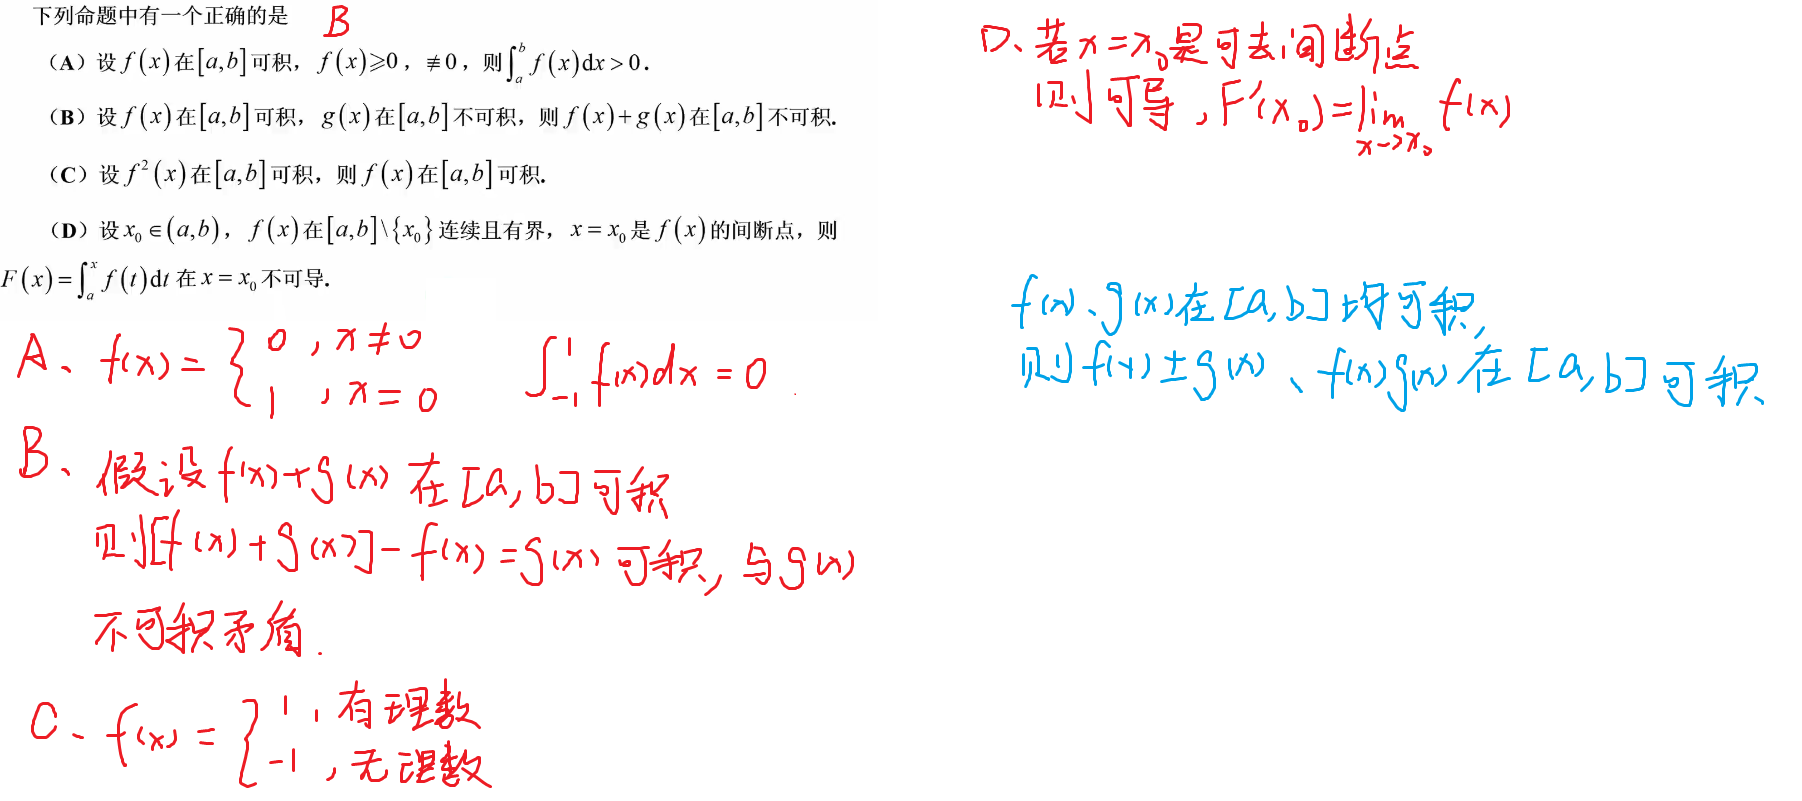 下列命题中有一个正确的是 B
（A）设 f(x) 在 [a,b] 可积，f(x)⩾0，≢0，则 ∫_a^b f(x)dx > 0．
（B）设 f(x) 在 [a,b] 可积，g(x) 在 [a,b] 不可积，则 f(x)+g(x) 在 [a,b] 不可积．
（C）设 f²(x) 在 [a,b] 可积，则 f(x) 在 [a,b] 可积．
（D）设 x₀∈(a,b)，f(x) 在 [a,b]\{x₀} 连续且有界，x = x₀ 是 f(x) 的间断点，则
F(x)=∫_a^x f(t)dt 在 x = x₀ 不可导．
A、f(x) = { 0 , x≠0
1 , x=0
∫_{-1}^1 f(x)dx = 0
B、假设 f(x)+g(x) 在 [a,b] 可积
则[f(x)+g(x)]-f(x)=g(x) 可积, 与g(x)
不可积矛盾.
C、f(x) = { 1 , 有理数
-1 , 无理数
D、若x=x₀是可去间断点
则可导，F'(x₀)=lim_{x->x₀} f(x)
f(x)、g(x)在[a,b]均可积,
则f(x)±g(x)、f(x)g(x)在[a,b]可积